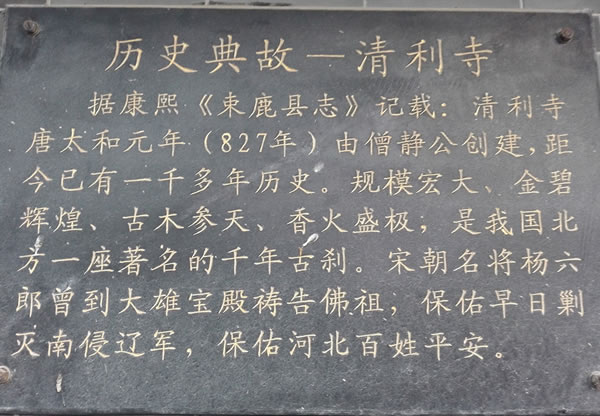 历史典故—清利寺
据康熙《束鹿县志》记载：清利寺
唐太和元年（827年）由僧静公创建，距
今已有一千多年历史。规模宏大、金碧
辉煌、古木参天、香火盛极；是我国北
方一座著名的千年古刹。宋朝名将杨六
郎曾到大雄宝殿祷告佛祖；保佑早日剿
灭南侵辽军，保佑河北百姓平安。